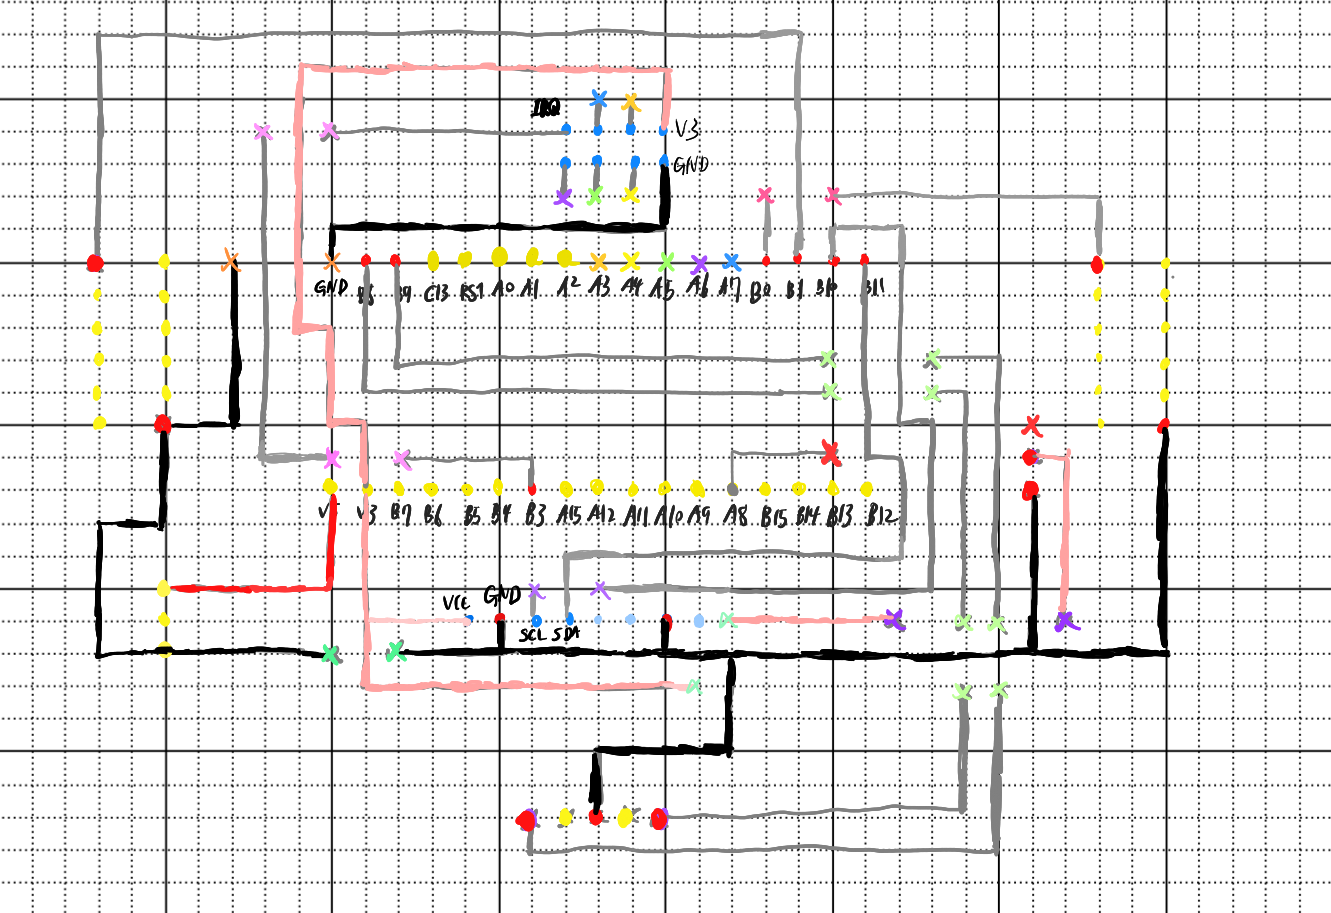 IRQ
V3
GND
GND B8 B9 C13 RST A0 A1 A2 A3 A4 A5 A6 A7 B0 B1 B10 B11
V3 B7 B6 B5 B4 B3 A15 A12 A11 A10 A9 A8 B15 B14 B13 B12
VCC GND
SCL SDA